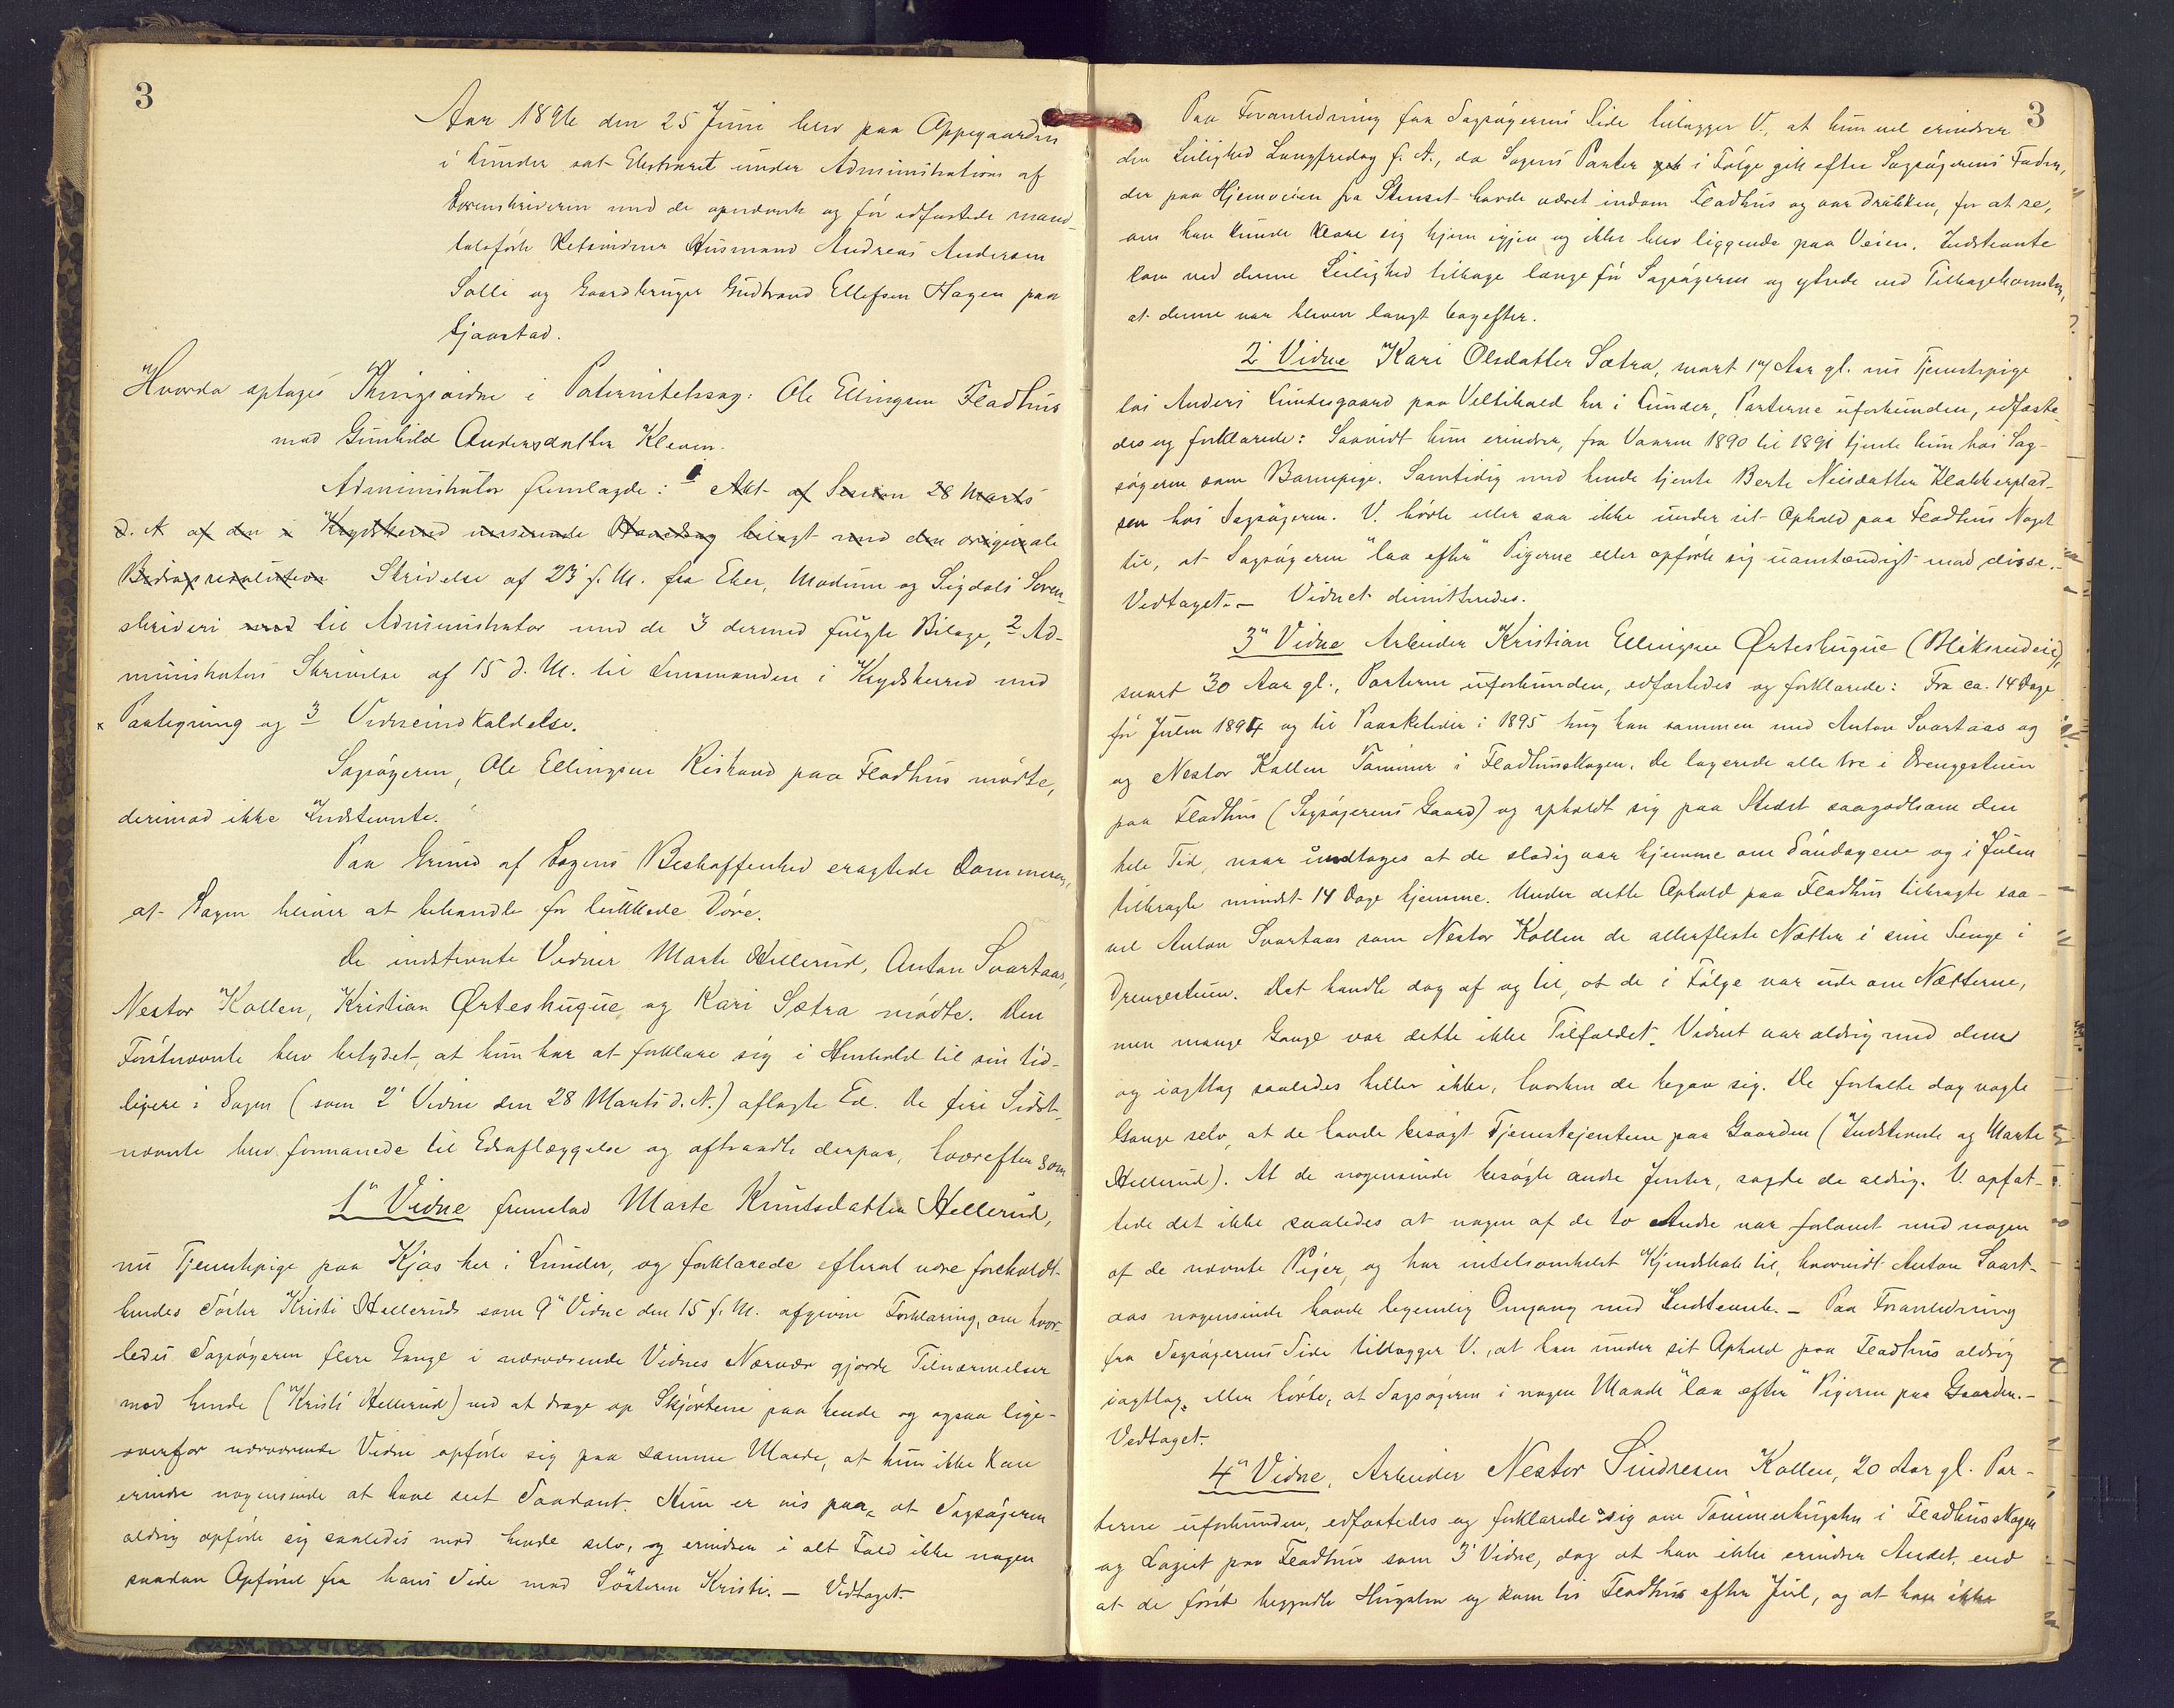 3
Aar 1896 den 25 Juni blev paa Oppegaarden
i Lunder sat Extraret under Administration af
Sorenskriveren med de opnævnte og før edfæstede mand-
talsførte Retsvidner Husmand Andreas Andersen
Solli og Gaardbruger Gudbrand Ellefsen Hagen paa
Gjaartad.
Hvorda optages Thingsvidne i Paternitetssag: Ole Ellingsen Fladhus
mod Gunhild Andersdatter Kleven.
Administrator fremlagde: 1 Akt af Sessien 28 Marts
d. A af den i Krydsherred verserende Sag bilagt med den originale
Bidragsresolution Skrivelse af 23 f. M. fra Eker, Modum og Sigdals Soren-
skriveri med til Administrator med de 3 dermed fulgte Bilage, 2 Ad-
ministrators Skrivelse af 15 d. M. til Lensmanden i Krydsherred med
x Paategning og 3 Vidneindkaldelse.
Sagsøgeren, Ole Ellingsen Ristrand paa Fladhus mødte,
derimod ikke Indstevnte.
Paa Grund af Sagens Beskaffenhed eragtede Dommeren,
at Sagen bliver at behandle for lukkede Døre.
De indstevnte Vidner Marte Hellerud, Anton Svartaas,
Nestor Kollen, Kristian Ørteshugue og Kari Sætra mødte. Den
Førstnævnte blev betydet, at hun har at forklare sig i Henhold til sin tid-
ligere i Sagen (som 2' Vidne den 28 Marts d. A.) aflagte Ed. De fire Sidst-
nævnte blev formanede til Edsaflæggelse og aftraadte derpaa, hvorefter som
1" Vidne fremstod Marte Knutsdatter Hellerud,
nu Tjenestepige paa Kjøs her i Lunder, og forklarede efterat være foreholdt
hendes Søster Kristi Helleruds som 9" Vidne den 15 f. M. afgivne Forklaring, om hvor-
ledes Sagsøgeren flere Gange i nærværende Vidnes Nærvær gjorde Tilnærmelser
mod hende (Kristi Hellerud) ved at drage op Skjørtene paa hende og ogsaa lige-
overfor nærværende Vidne opførte sig paa samme Maade, at hun ikke kan
erindre nogensinde at have seet Saadant. Hun er vis paa, at Sagsøgeren
aldrig opførte sig saaledes mod hende selv, og erindrer i alt Fald ikke nogen
saadan Opførsel fra hans Side mod Søsteren Kristi. – Vedtaget.
3
Paa Foranledning fra Sagsøgerens Side tillægger V., at hun vel erindrer
den Leilighed Langfredag f. A., da Sagens Parter gik i Følge gik efter Sagsøgerens Fader,
der paa Hjemveien fra Stenset havde været indom Fladhus og var drukken, for at se,
om han kunde klare sig hjem igjen og ikke blev liggende paa Veien. Indstevnte
kom ved denne Leilighed tilbage længe før Sagsøgeren og ytrede ved Tilbagekomsten,
at denne var bleven langt bagefter.
2' Vidne Kari Olsdatter Sætra, snart 17 Aar gl. nu Tjenestepige
hos Anders Lundesgaard paa Veltihald her i Lunder, Parterne uforbunden, edfæste-
des og forklarede: Saavidt hun erindrer, fra Vaaren 1890 til 1891 tjente hun hos Sag-
søgeren som Barnepige. Samtidig med hende tjente Berte Nilsdatter Klakkerplad-
sen hos Sagsøgeren. V. hørte eller saa ikke under sit Ophold paa Fladhus Noget
til, at Sagsøgeren "laa efter" Pigerne eller opførte sig uanstændigt mod disse. –
Vedtaget. – Vidnet dimitteredes.
3" Vidne Arbeider Kristian Ellingsen Ørteshugue (Bliksrudeie),
snart 30 Aar gl., Parterne uforbunden, edfæstedes og forklarede: Fra ca. 14 Dage
før Julen 1894 og til Paasketider i 1895 hug han sammen med Anton Svartaas og
og Nestor Kollen Tømmer i Fladhusskogen. De lagerede alle tre i Drengestuen
paa Fladhus (Sagsøgerens Gaard) og opholdt sig paa Stedet saagodtsom den
hele Tid, naar undtages at de stadig var hjemme om Søndagene og i Julen
tilbragte mindst 14 Dage hjemme. Under dette Ophold paa Fladhus tilbragte saa-
vel Anton Svartaas som Nestor Kollen de allerfleste Nætter i sine Senge i
Drengestuen. Det hændte dog af og til, at de i Følge var ude om Nætterne,
men mange Gange var dette ikke Tilfældet. Vidnet var aldrig med dem
og iagttog saaledes heller ikke, hvorhen de begav sig. De fortalte dog nogle
Gange selv, at de havde besøgt Tjenestejenterne paa Gaarden (Indstevnte og Marte
Hellerud). At de nogensinde besøgte andre Jenter, sagde de aldrig. V. opfat-
tede det ikke saaledes at nogen af de to Andre var forlovet med nogen
af de nævnte Piger, og har intetsomhelst Kjendskab til, hvorvidt Anton Svart-
aas nogensinde havde legemlig Omgang med Indstevnte. – Paa Foranledning
fra Sagsøgerens Side tillægger V., at han under sit Ophold paa Fladhus aldrig
iagttog eller hørte, at Sagsøgeren i nogen Maade "laa efter" Pigerne paa Gaarden. –
Vedtaget.
4" Vidne, Arbeider Nestor Sindresen Kollen, 20 Aar gl. Par-
terne uforbunden, edfæstedes og forklarede sig om Tømmerhugsten i Fladhusskogen
og Logiet paa Fladhus som 3' Vidne, dog at han ikke erindrer Andet, end
at de først begyndte Hugsten og kom til Fladhus efter Jul, og at han ikke